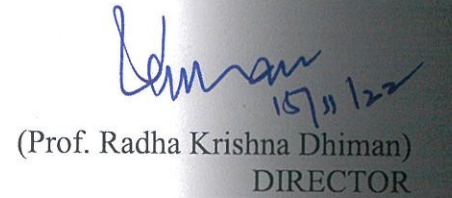 Dhiman
15/11/22
(Prof. Radha Krishna Dhiman)
DIRECTOR